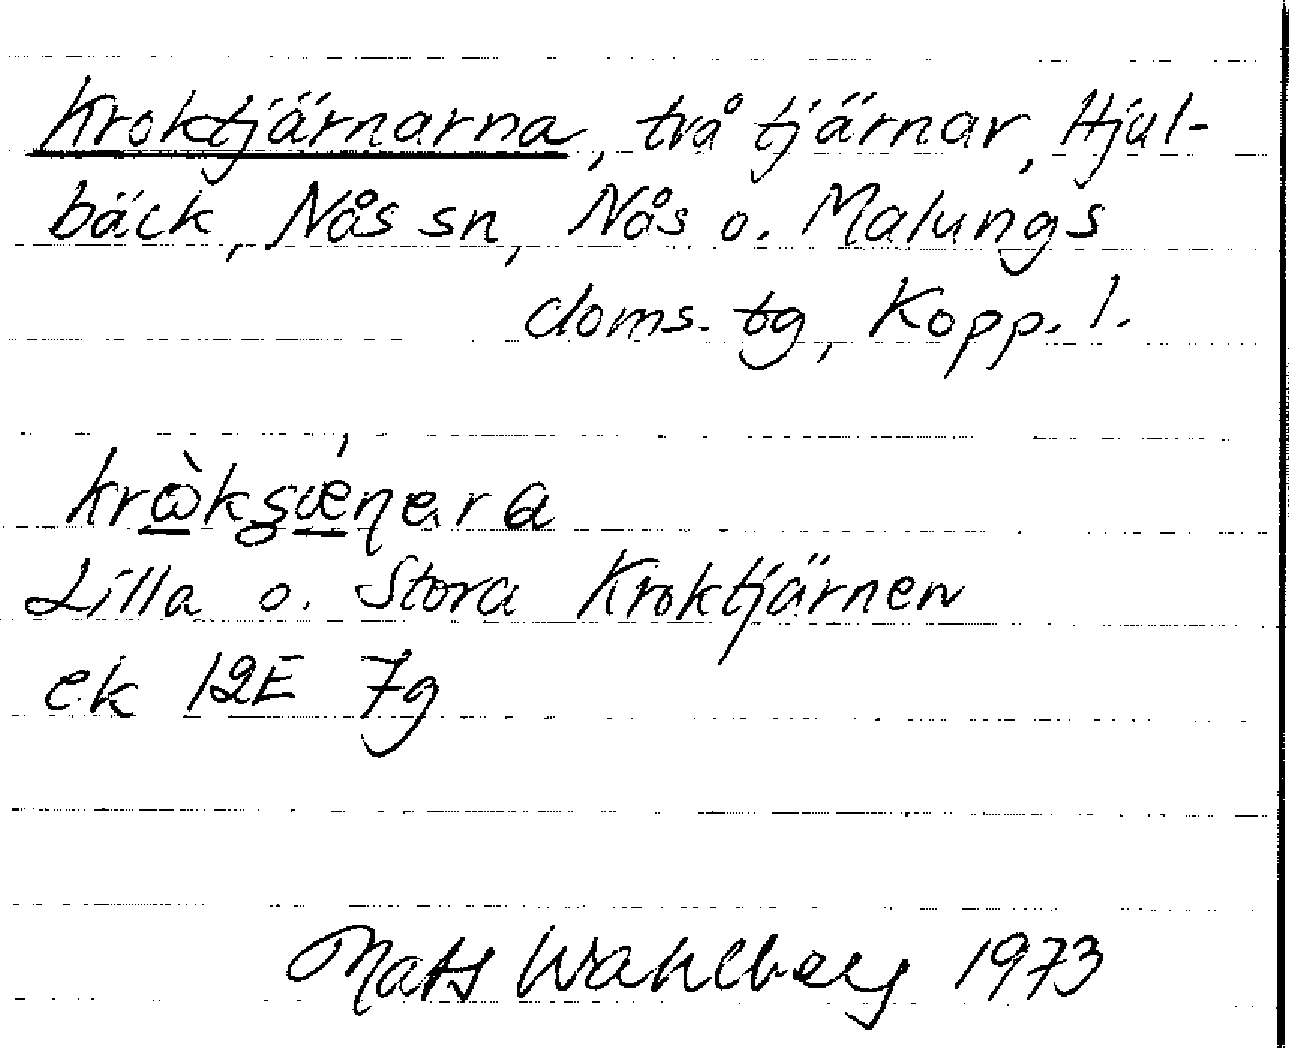 Kroktjärnarna, två tjärnar, Hjul-
bäck, Nås sn, Nås o. Malungs
doms. tg, Kopp. l.
Lilla o. Stora Kroktjärnen
ek 12E 7g
Mats Wahlberg 1973